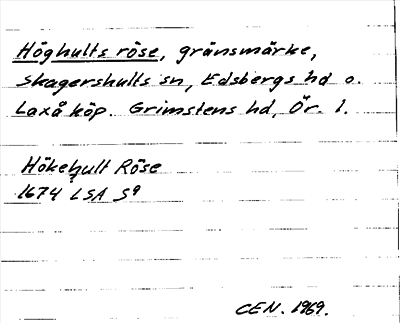 Höghults röse, gränsmärke,
Skagershults sn, Edsbergs hd o.
Laxå köp. Grimstens hd, Ör. l.
Hökehult Röse
1674 LSA S9
CEN. 1969.